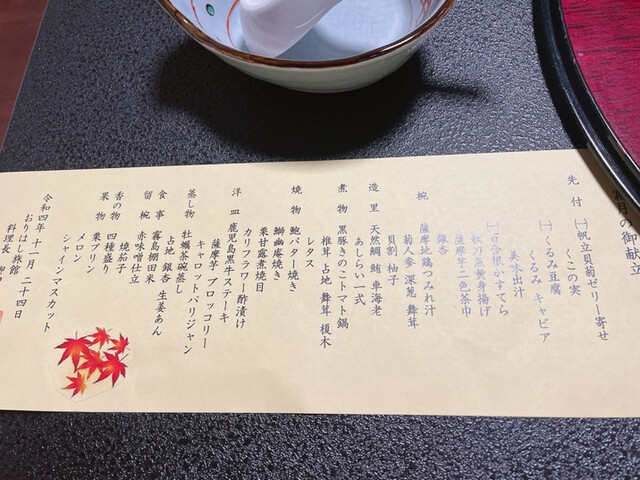 月の御献立
先付 ㈠帆立貝菊ゼリー寄せ
くこの実
㈠くるみ豆腐
くるみ キャビア
美味出汁
㈠百合根かすてら
秋刀魚黄身揚げ
薩摩芋二色茶巾
銀杏
椀 薩摩地鶏つみれ汁
菊人参 深葱 舞茸
貝割 柚子
造里 天然鯛 鮪 車海老
あしらい一式
煮物 黒豚きのこトマト鍋
椎茸 占地 舞茸 榎木
レタス
焼物 鮑バター焼き
鰤幽庵焼き
栗甘露煮焼目
カリフラワー酢漬け
洋皿 鹿児島黒牛ステーキ
薩摩芋 ブロッコリー
キャロットパリジャン
蒸し物 牡蠣茶碗蒸し
占地 銀杏 生姜あん
食事 霧島棚田米
留椀 赤味噌仕立
焼茄子
香の物 四種盛り
果物 栗プリン
メロン
シャインマスカット
令和四年 十一月 二十四日
おりはし旅館
料理長